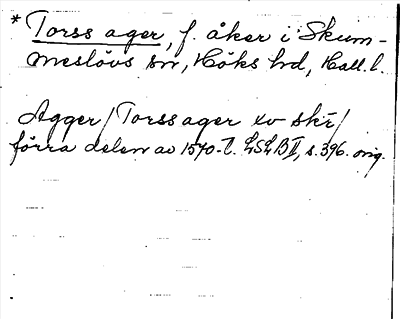 * Torss ager, f. åker i Skum-
meslövs sn, Höks hd, Hall. l.
Agger / Torssager xv skr /
förra delen av 1570-t. LSLB II, s. 396. orig.